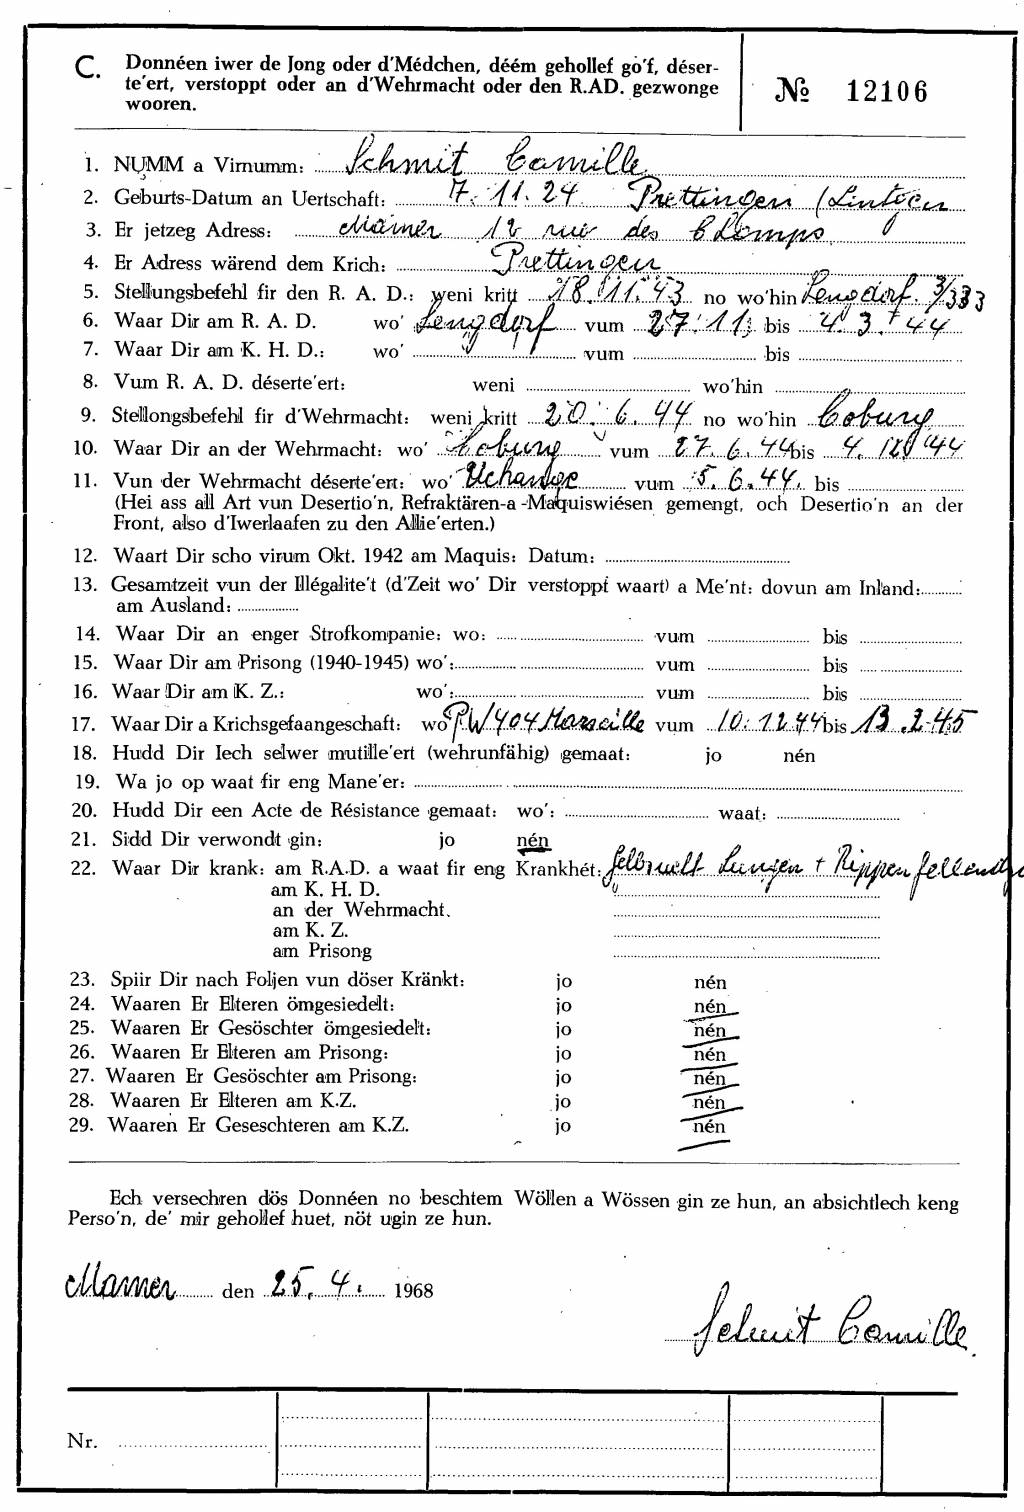 C. Donnéen iwer de Jong oder d'Médchen, déém gehollef go'f, déser-
te'ert, verstoppt oder an d'Wehrmacht oder den R.AD. gezwonge
wooren.
№ 12106
1. NUMM a Virnumm: Schmit Camille
2. Geburts-Datum an Uertschaft: 7.11.24 Prettingen (Lintgen
3. Er jetzeg Adress: Mamer 12 rue des Champs
4. Er Adress wärend dem Krich: Prettingen
5. Stellungsbefehl fir den R. A. D.: weni kritt 18.11.43 no wo'hin Lengdorf. 3/333
6. Waar Dir am R. A. D. wo' Lengdorf vum 27.11. bis 4.3.44
7. Waar Dir am K. H. D.: wo' vum bis
8. Vum R. A. D. déserte'ert: weni wo'hin
9. Stellongsbefehl fir d'Wehrmacht: weni kritt 20.6.44 no wo'hin Coburg
10. Waar Dir an der Wehrmacht: wo' Coburg vum 27.6.44 bis 4. 44
11. Vun der Wehrmacht déserte'ert: wo' Uchange vum 5.6.44. bis
(Hei ass all Art vun Desertio'n, Refraktären-a -Maquiswiésen gemengt, och Desertio'n an der
Front, also d'Iwerlaafen zu den Allie'erten.)
12. Waart Dir scho virum Okt. 1942 am Maquis: Datum:
13. Gesamtzeit vun der Illégalite't (d'Zeit wo' Dir verstoppt waart) a Me'nt: dovun am Inland:
am Ausland:
14. Waar Dir an enger Strofkompanie: wo: vum bis
15. Waar Dir am Prisong (1940-1945) wo': vum bis
16. Waar Dir am K. Z.: wo': vum bis
17. Waar Dir a Krichsgefaangeschaft: wo' P.W 404 Marseille vum 10.12.44 bis 13.2.45
18. Hudd Dir Iech selwer mutille'ert (wehrunfähig) gemaat: jo nén
19. Wa jo op waat fir eng Mane'er:
20. Hudd Dir een Acte de Résistance gemaat: wo': waat:
21. Sidd Dir verwondt gin: jo nén
22. Waar Dir krank: am R.A.D. a waat fir eng Krankhét: Gelbsucht Lungen + Rippenfellentz
am K. H. D.
an der Wehrmacht.
am K. Z.
am Prisong
23. Spiir Dir nach Foljen vun döser Kränkt: jo nén
24. Waaren Er Elteren ömgesiedelt: jo nén
25. Waaren Er Gesöschter ömgesiedelt: jo nén
26. Waaren Er Elteren am Prisong: jo nén
27. Waaren Er Gesöschter am Prisong: jo nén
28. Waaren Er Elteren am K.Z. jo nén
29. Waaren Er Geseschteren am K.Z. jo nén
Ech versechren dös Donnéen no beschtem Wöllen a Wössen gin ze hun, an absichtlech keng
Perso'n, de' mir gehollef huet, nöt ugin ze hun.
Mamer den 25.4. 1968
Schmit Camille.
Nr.